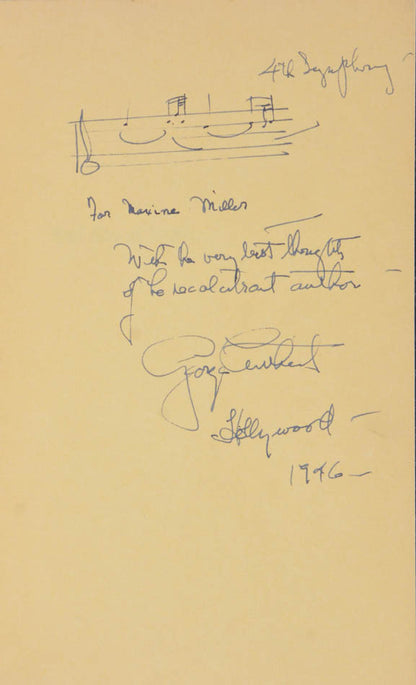 4th Symphony
For Maxine Miller
With the very best thoughts
of the recalcitrant author
George Antheil
Hollywood
1946